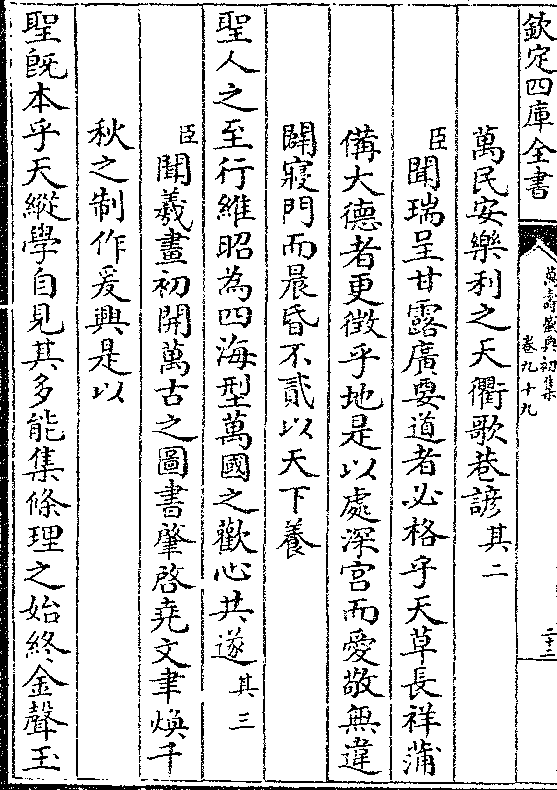 欽定四庫全書
萬壽盛典初集
卷九十九
二十二
萬民安樂利之天衢歌巷諺其二
臣聞瑞呈甘露廣要道者必格乎天草長祥蒲
備大德者更徴乎地是以處深宫而愛敬無違
闢寢門而晨昏不貳以天下養
聖人之至行維昭為四海型萬國之歡心共遂其三
臣聞羲畫初開萬古之圖書肇啓堯文聿煥千
秋之制作爰興是以
聖既本乎天縱學自見其多能集條理之始終金聲玉